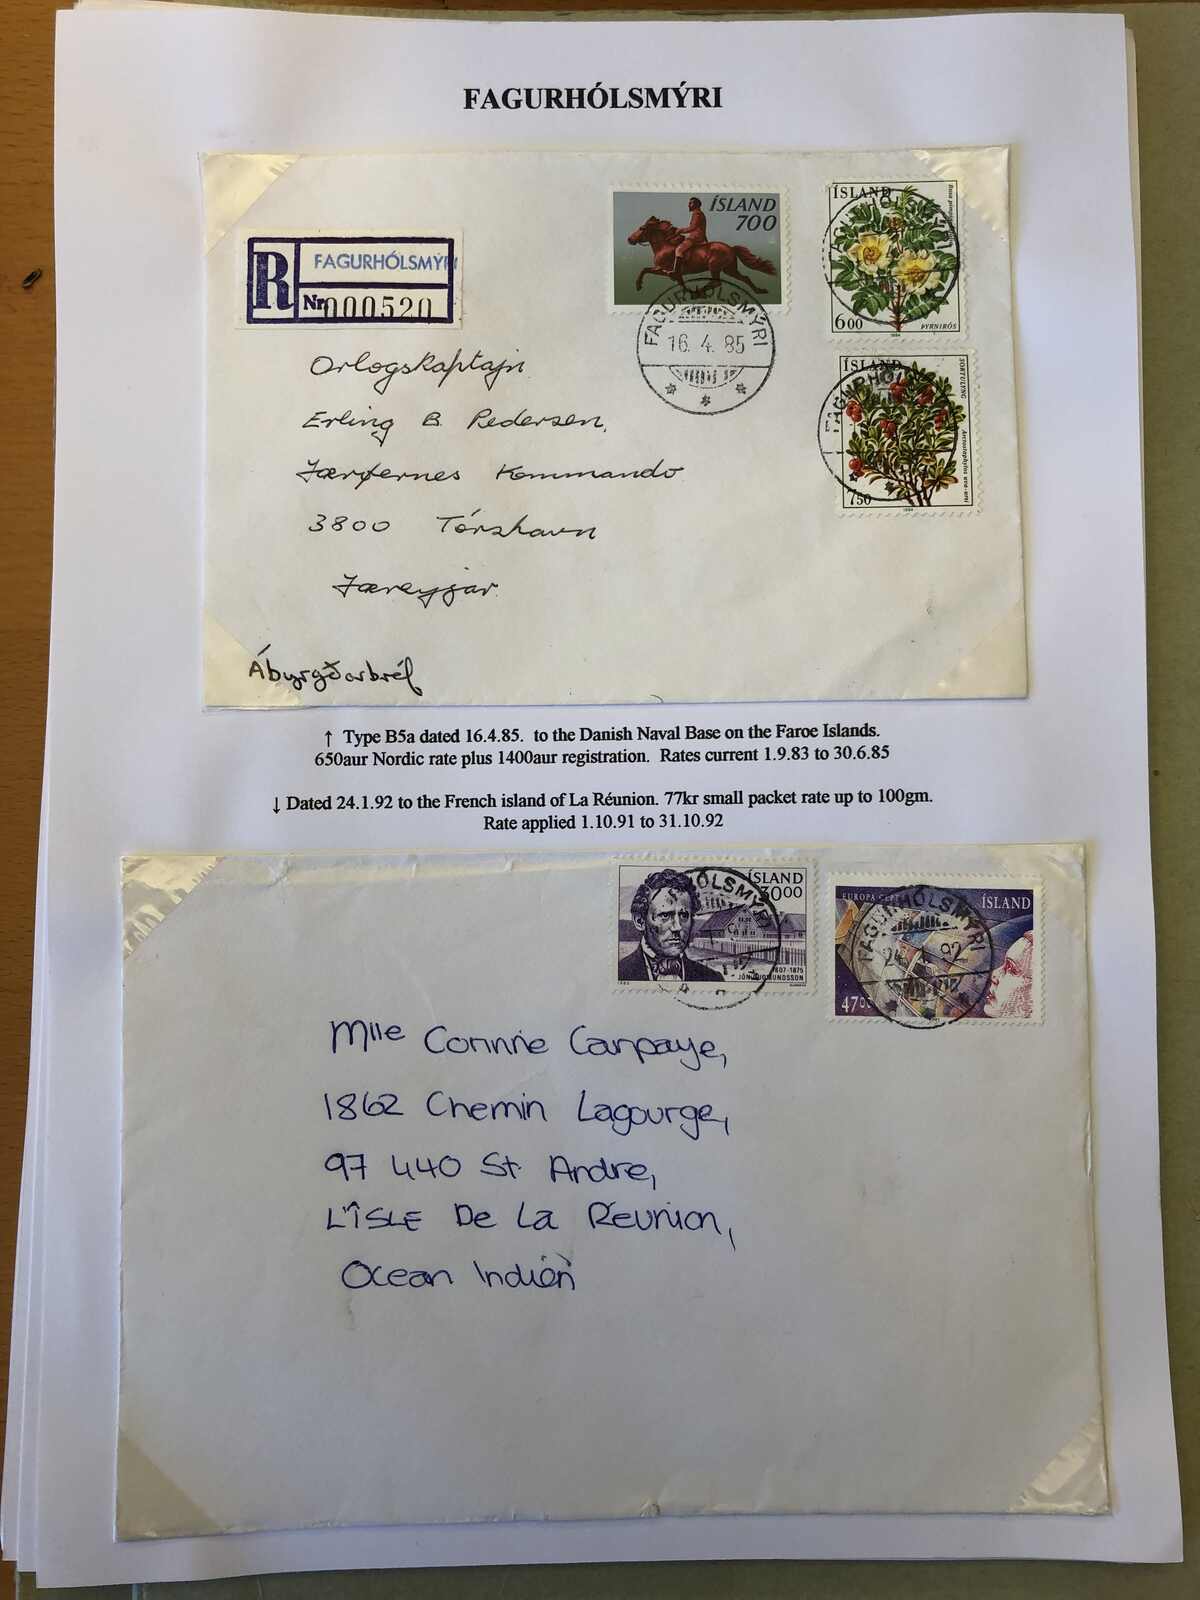 FAGURHÓLSMÝRI
R FAGURHÓLSMÝRI
Nr. 000520
ÍSLAND
700
FAGURHÓLSMÝRI
16. 4. 85
ÍSLAND
FAGURHÓLSMÝRI
6 00
1984
ÞYRNIRÓS
ÍSLAND
SORTULYNG
Arctostaphylos uva-ursi
FAGURHÓLS
7 50
1984
Orlogskaptajn
Erling B. Pedersen,
Færøernes Kommando
3800 Tórshavn
Færeyjar.
Ábyrgðarbréf
↑ Type B5a dated 16.4.85. to the Danish Naval Base on the Faroe Islands.
650aur Nordic rate plus 1400aur registration. Rates current 1.9.83 to 30.6.85
↓ Dated 24.1.92 to the French island of La Réunion. 77kr small packet rate up to 100gm.
Rate applied 1.10.91 to 31.10.92
ÍSLAND
30.00
RHÓLSMÝRI
1807-1875
JÓN SIGURÐSSON
EUROPA CEPT
ÍSLAND
FAGURHÓLSMÝRI
24. 1. 92
47 00
Mlle Corinne Canpaye,
1862 Chemin Lagourge,
97 440 St. Andre,
L'ÎSLE De La Réunion,
Ocean Indien